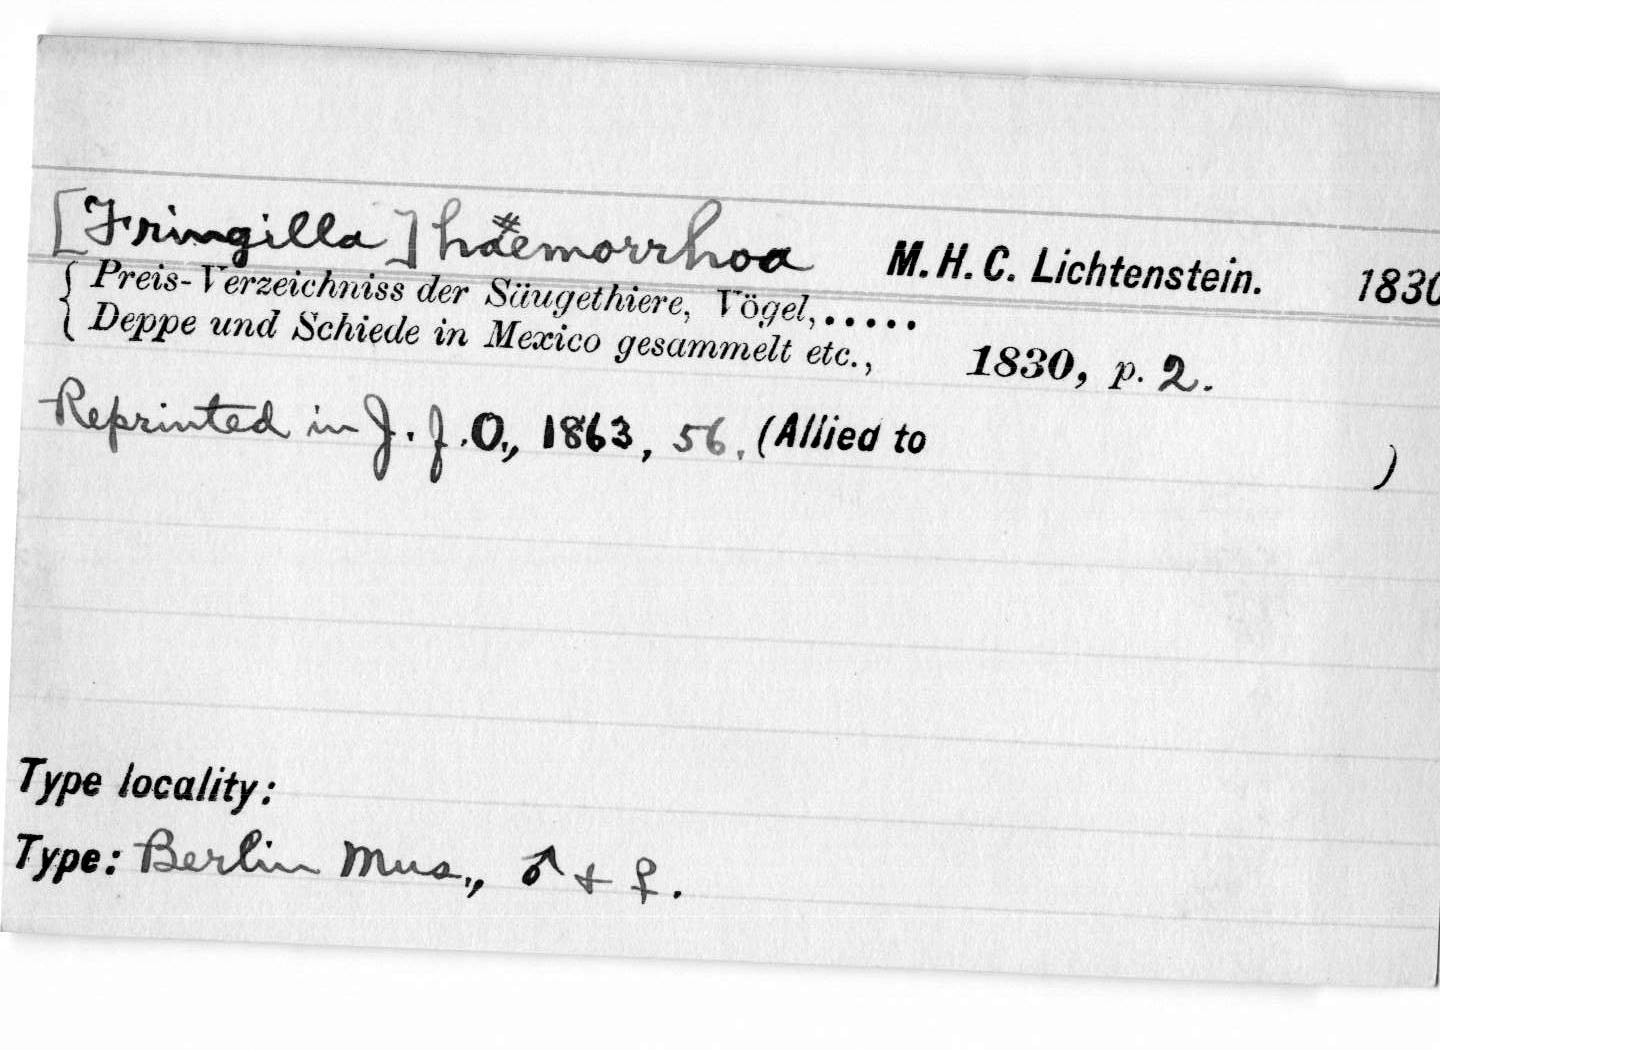 [Fringilla] haemorrhoa M. H. C. Lichtenstein. 1830
{ Preis-Verzeichniss der Säugethiere, Vögel,.....
Deppe und Schiede in Mexico gesammelt etc., 1830, p. 2.
Reprinted in J. f. O., 1863, 56. (Allied to )
Type locality:
Type: Berlin Mus., ♂ + ♀.